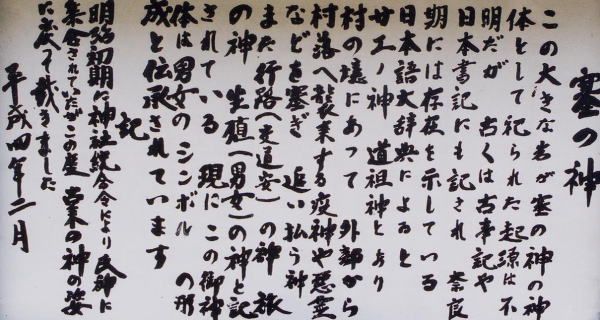 塞の神
この大きな岩が塞の神の神
体として祀られた起源は不
明だが 古くは古事記や
日本書記にも記され 奈良
期には存在を示している
日本語大辞典によると
サエノ神 道祖神とあり
村の境にあって 外部から
村落へ襲来する疫神や悪霊
などを塞ぎ 追い払う神
また行路(交通安)の神 旅
の神 生殖(男女)の神と記
されている 現にこの御神
体は男女のシンボル の形
成と伝承されています
記
明治初期に神社統合令により氏神に
集合されていたがこの度 塞の神の姿
に戻って戴きました
平成四年二月